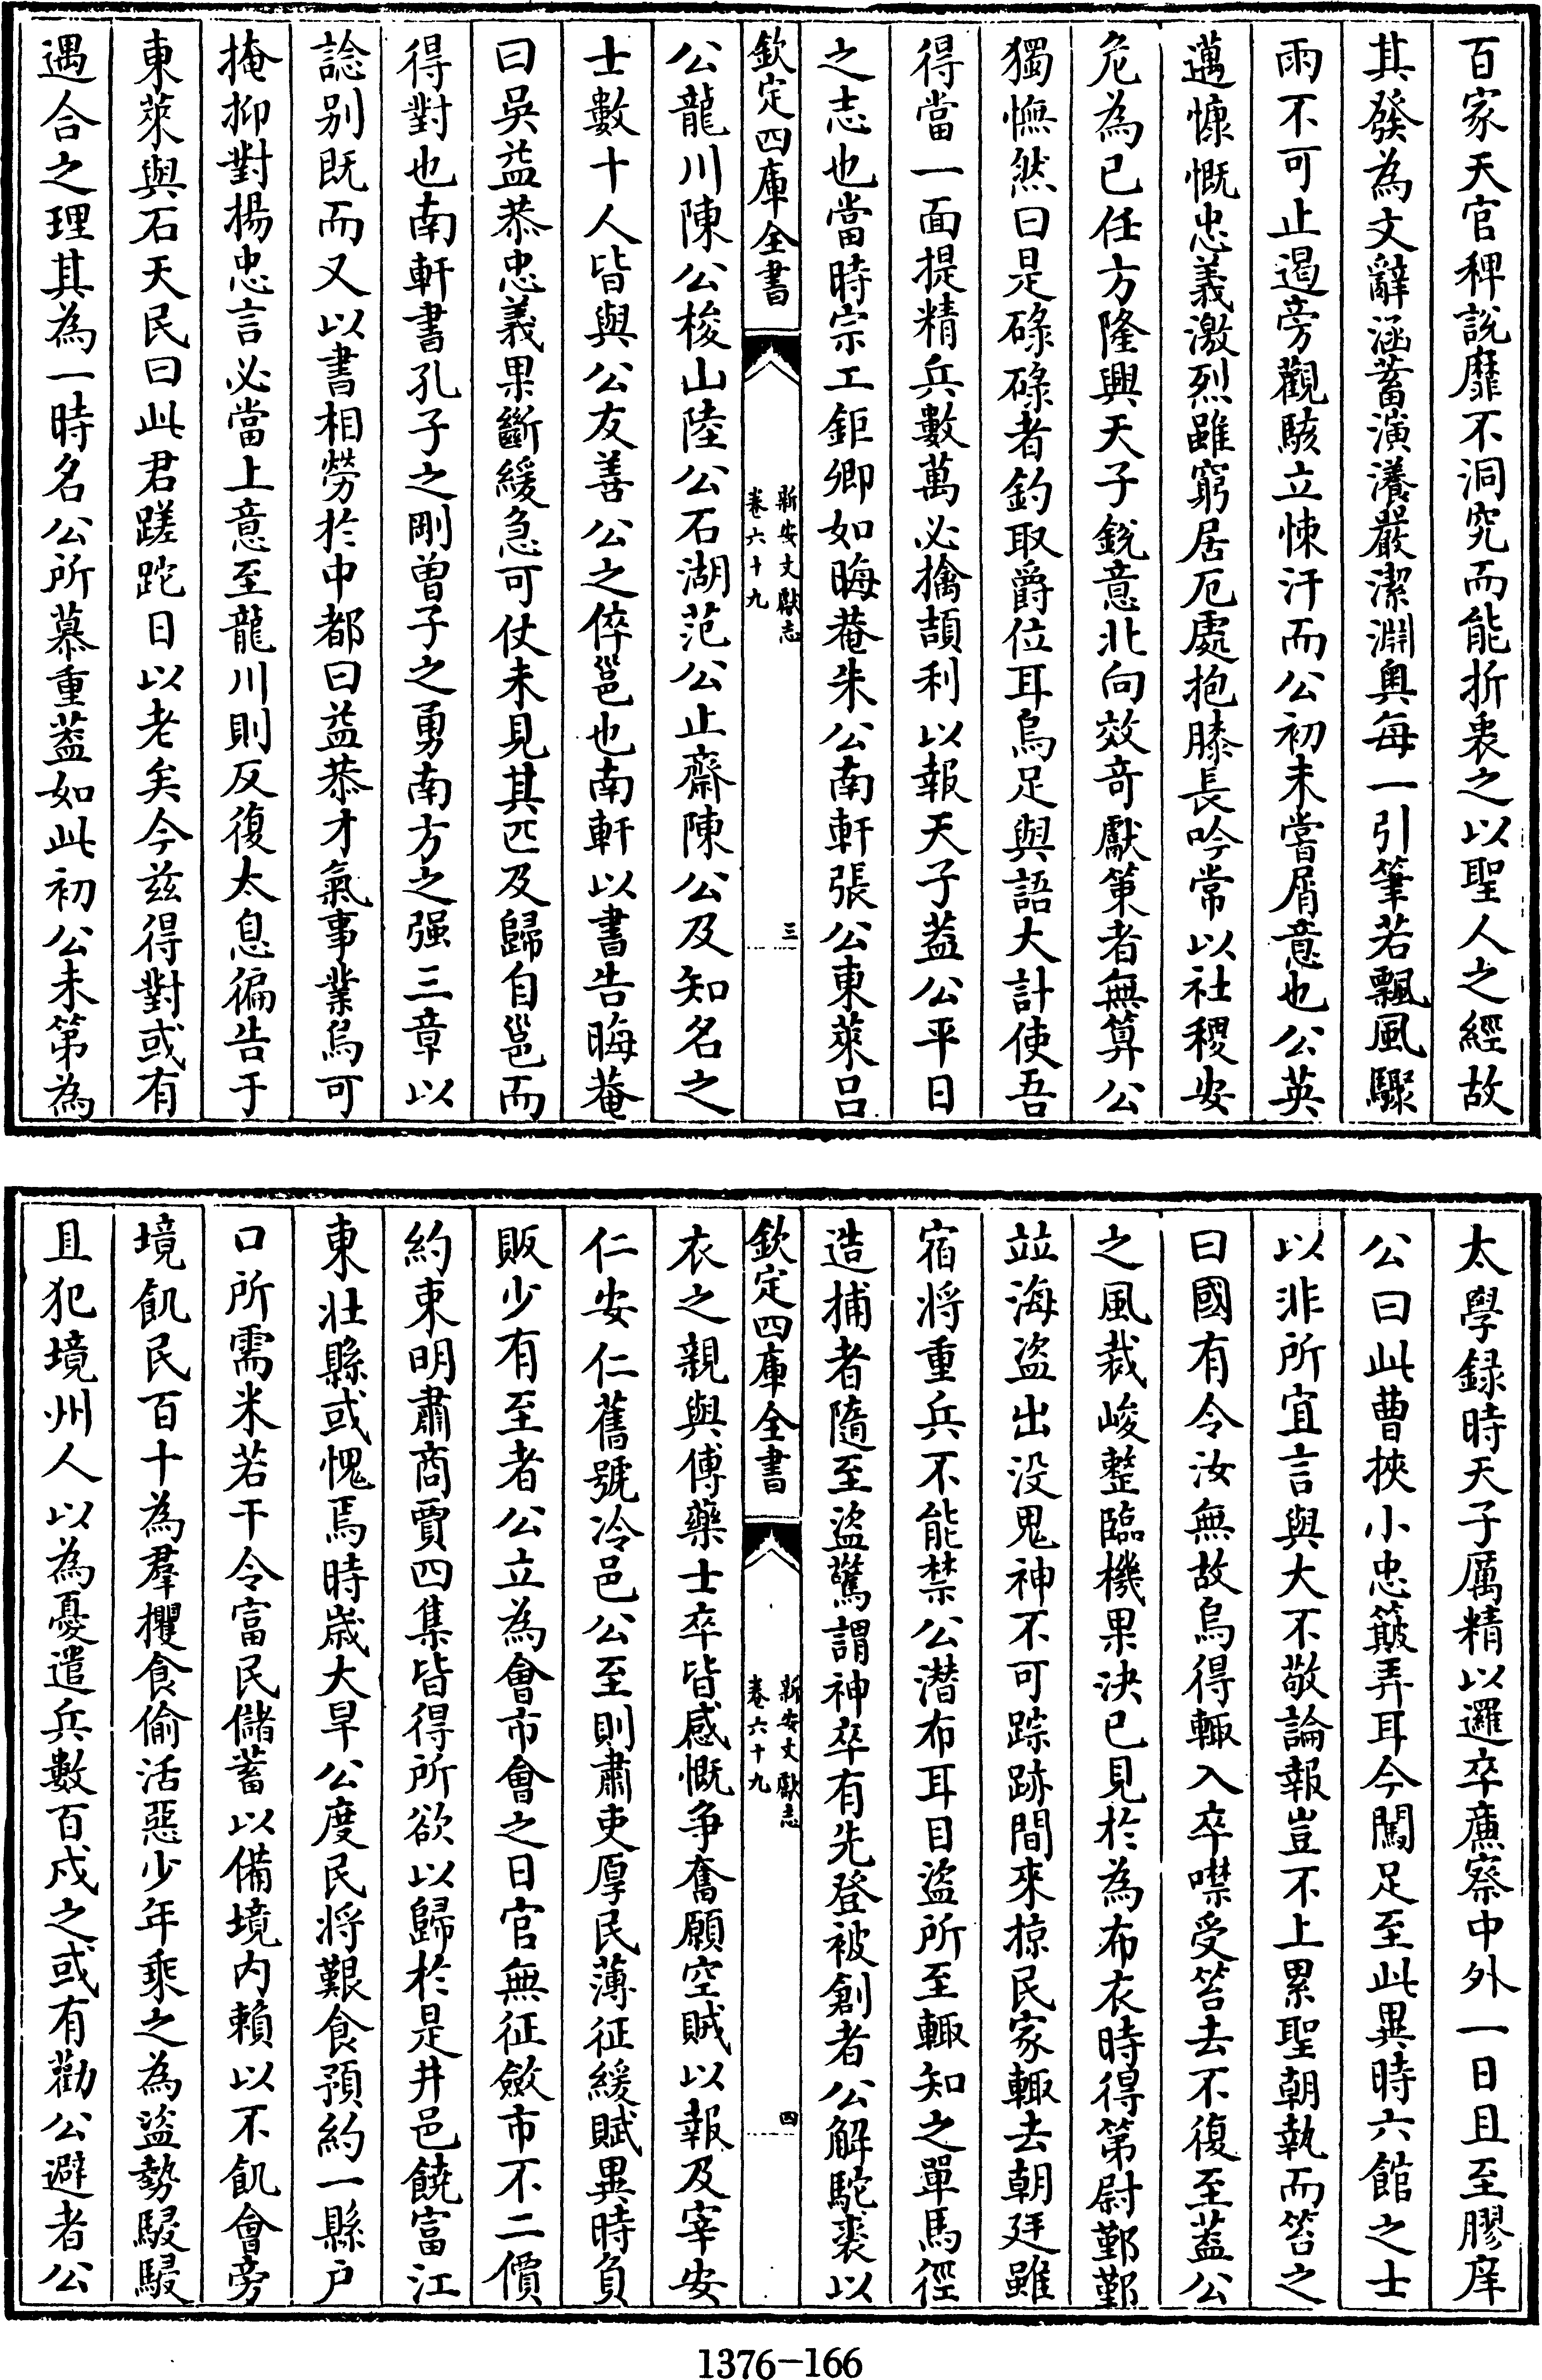 百家天官稗說靡不洞究而能折衷之以聖人之經故
其發為文辭涵蓄演瀁嚴潔淵奧每一引筆若飄風驟
雨不可止遏旁觀駭立悚汗而公初未嘗屑意也公英
邁慷慨忠義激烈雖窮居厄處抱膝長吟常以社稷安
危為已任方隆興天子銳意北向效奇獻策者無算公
獨憮然曰是碌碌者釣取爵位耳烏足與語大計使吾
得當一面提精兵數萬必擒頡利以報天子葢公平日
之志也當時宗工鉅卿如晦菴朱公南軒張公東萊呂
欽定四庫全書
新安文獻志
卷六十九
三
公龍川陳公梭山陸公石湖范公止齋陳公及知名之
士數十人皆與公友善公之倅邕也南軒以書告晦菴
曰吳益恭忠義果斷緩急可仗未見其匹及歸自邕而
得對也南軒書孔子之剛曾子之勇南方之强三章以
諗别既而又以書相勞於中都曰益恭才氣事業烏可
掩抑對揚忠言必當上意至龍川則反復太息徧告于
東萊與石天民曰此君蹉跎日以老矣今兹得對或有
遇合之理其為一時名公所慕重葢如此初公未第為
太學録時天子厲精以邏卒㢘察中外一日且至膠庠
公曰此曹挾小忠簸弄耳今闖足至此異時六館之士
以非所宜言與大不敬論報豈不上累聖朝執而笞之
曰國有令汝無故烏得輒入卒噤受笞去不復至葢公
之風裁峻整臨機果決已見於為布衣時得第尉鄞鄞
竝海盜出没鬼神不可踪跡間來掠民家輒去朝廷雖
宿將重兵不能禁公潛布耳目盜所至輒知之單馬徑
造捕者隨至盜驚謂神卒有先登被創者公解駝裘以
欽定四庫全書
新安文獻志
卷六十九
四
衣之親與傅藥士卒皆感慨争奮願空賊以報及宰安
仁安仁舊號冷邑公至則肅吏厚民薄征緩賦異時負
販少有至者公立為會市會之日官無征斂市不二價
約束明肅商賈四集皆得所欲以歸於是井邑饒富江
東壯縣或愧焉時歲大旱公度民將艱食預約一縣戶
口所需米若干令富民儲蓄以備境内賴以不飢會旁
境飢民百十為羣攫食偷活惡少年乘之為盜勢駸駸
且犯境州人以為憂遣兵數百戍之或有勸公避者公
1376-166